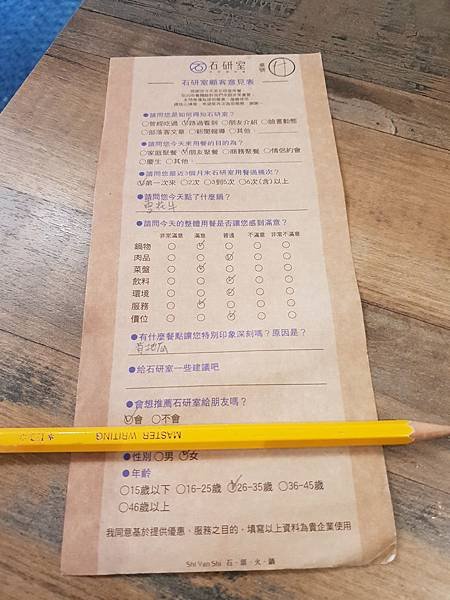 石研室
桌號
石研室顧客意見表
●請問您是如何得知石研室?
○曾經吃過 ○路過看到 ○朋友介紹 ○臉書動態
○部落客文章 ○新聞報導 ○其他:
●請問您今天來用餐的目的為?
○家庭聚餐 ○朋友聚餐 ○商務聚餐 ○情侶約會
○慶生 ○其他:
●請問您最近3個月來石研室用餐過幾次?
○第一次來 ○2次 ○3到5次 ○6次(含)以上
●請問您今天點了什麼鍋?
雪花牛
●請問今天的整體用餐是否讓您感到滿意?
非常滿意 滿意 普通 不滿意 非常不滿意
鍋物 ○ ○ ○ ○ ○
肉品 ○ ○ ○ ○ ○
菜盤 ○ ○ ○ ○ ○
飲料 ○ ○ ○ ○ ○
環境 ○ ○ ○ ○ ○
服務 ○ ○ ○ ○ ○
價位 ○ ○ ○ ○ ○
●有什麼餐點讓您特別印象深刻嗎?原因是?
地瓜
●給石研室一些建議吧
●會想推薦石研室給朋友嗎?
○會 ○不會
MASTER WRITING
●性別○男 ○女
●年齡
○15歲以下 ○16-25歲 ○26-35歲 ○36-45歲
○46歲以上
我同意基於提供優惠、服務之目的,填寫以上資料為貴企業使用
Shi Yan Shi 石·頭·火·鍋